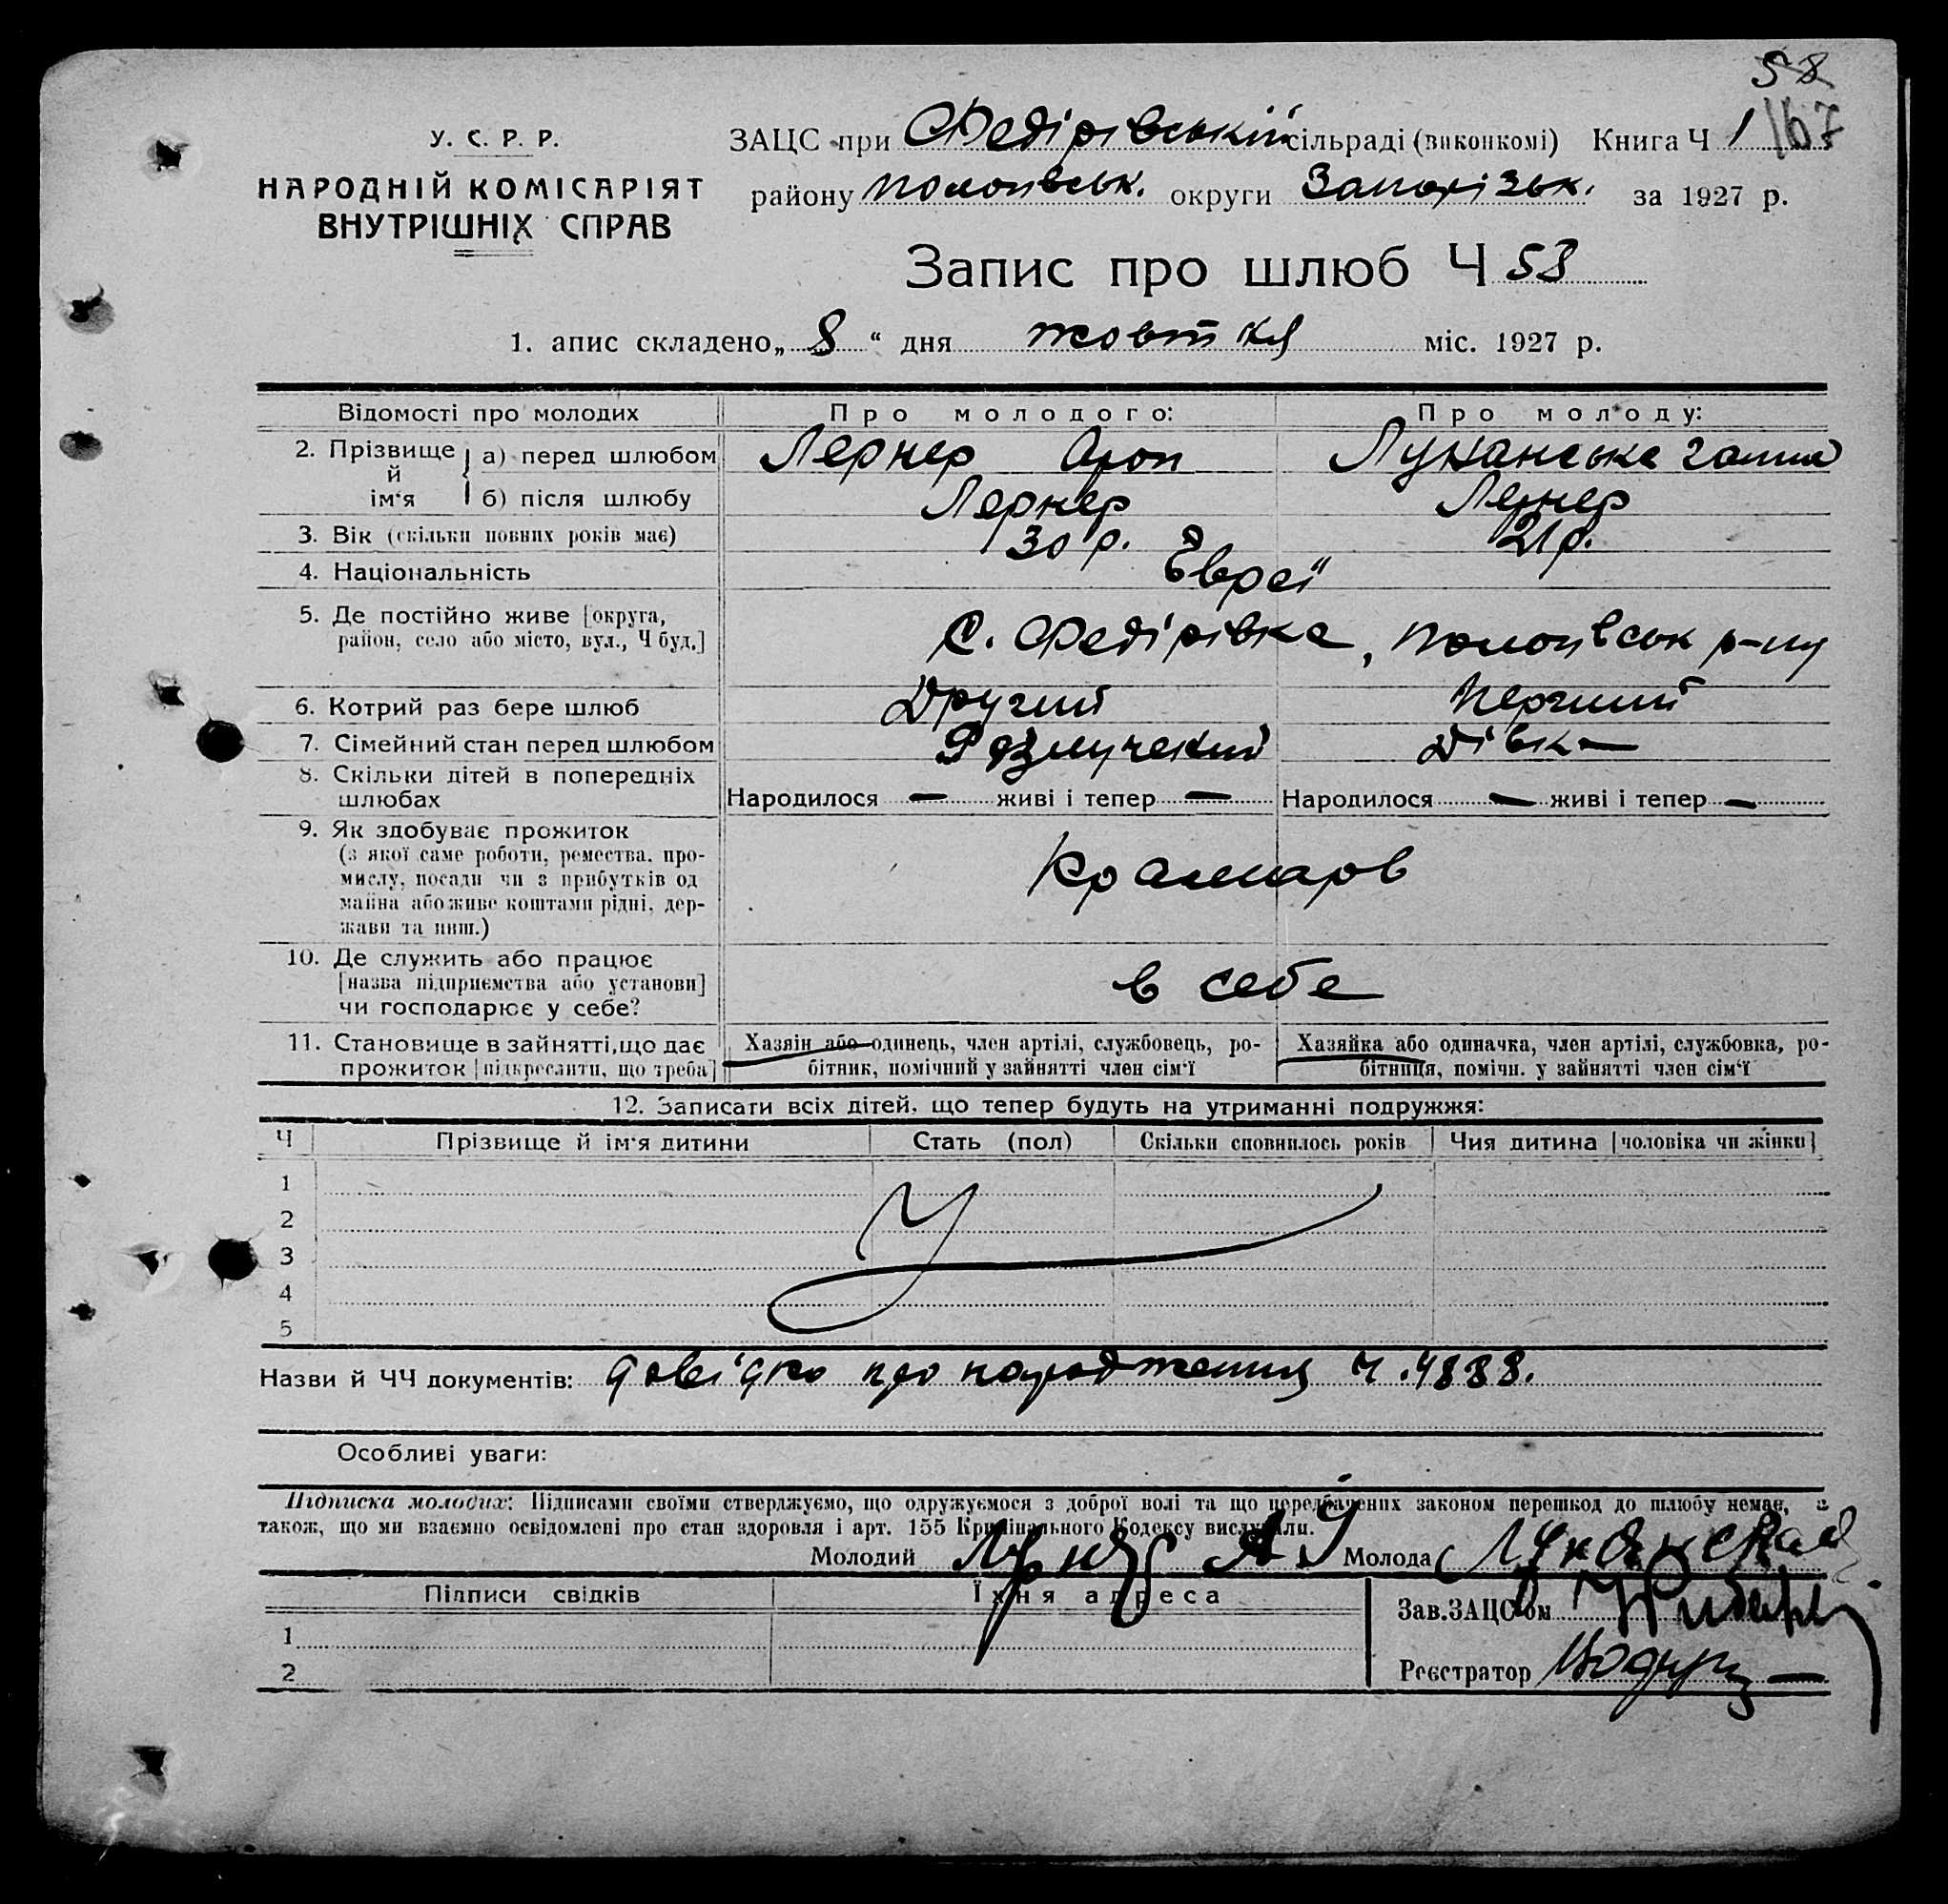 58
У. С. Р. Р.
НАРОДНІЙ КОМІСАРІЯТ
ВНУТРІШНІХ СПРАВ
ЗАЦС при Федірівській сільраді (виконкомі) Книга Ч 1
району Пологівськ. округи Запоріззьк. за 1927 р.
Запис про шлюб Ч 58
1. апис складено „8“ дня жовтня міс. 1927 р.
Відомості про молодих Про молодого: Про молоду:
2. Прізвище й ім‘я а) перед шлюбом Лернер Арон Луканська Ганна
б) після шлюбу Лернер Лернер
3. Вік (скільки повних років має) 30 р. 21 р.
4. Національність Євреї
5. Де постійно живе [округа, район, село або місто, вул., Ч буд.] С. Федірівка, Пологівськ р-ну
6. Котрий раз бере шлюб Другий Перший
7. Сімейний стан перед шлюбом Дівка
8. Скільки дітей в попередніх шлюбах Народилося — живі і тепер — Народилося — живі і тепер —
9. Як здобуває прожиток
(з якої саме роботи, ремества, про-
мислу, посади чи з прибутків од
майна або живе коштами рідні, дер-
жави та инш.)
Крамарюв
10. Де служить або працює
[назва підприємства або установи]
чи господарює у себе?
в себе
11. Становище в зайнятті, що дає прожиток [підкреслити, що треба]
Хазяїн або одинець, член артілі, службовець, ро-
бітник, помічний у зайнятті член сім‘ї
Хазяйка або одиначка, член артілі, службовка, ро-
бітниця, помічн. у зайнятті член сім‘ї
12. Записати всіх дітей, що тепер будуть на утриманні подружжя:
Ч Прізвище й ім‘я дитини Стать (пол) Скільки сповнилось років Чия дитина [чоловіка чи жінки]
1
2
3
4
5
Назви й ЧЧ документів: довідка про народження Ч. 4888.
Особливі уваги:
Підписка молодих: Підписами своїми стверджуємо, що одружуємося з доброї волі та що передбачених законом перешкод до шлюбу немає, а
також, що ми взаємно освідомлені про стан здоровля і арт. 155 Кримінального Кодексу вислухали.
Молодий Лернер А. Молода Луканская
Підписи свідків Їхня адреса Зав. ЗАЦС‘ом
1
2 Реєстратор